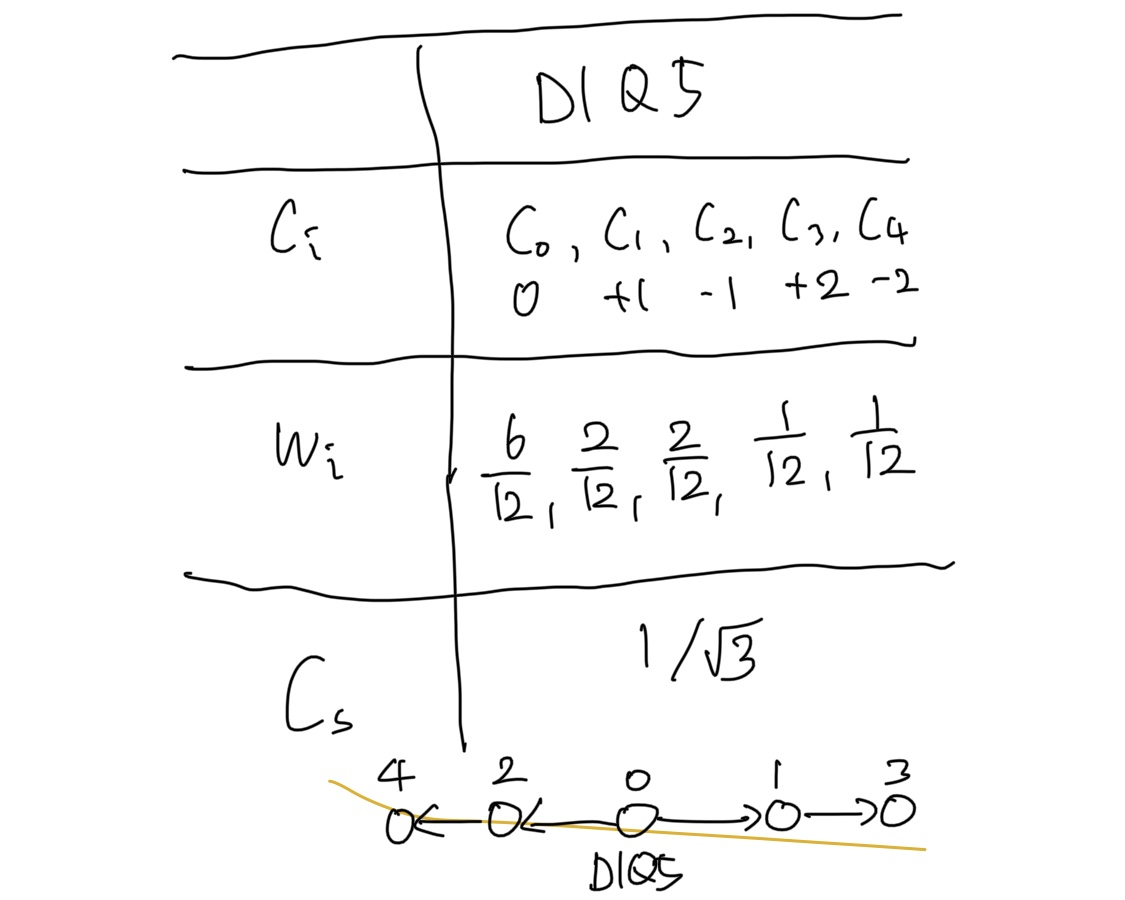 D1Q5
Ci C0, C1, C2, C3, C4
0 +1 -1 +2 -2
Wi 6/12, 2/12, 2/12, 1/12, 1/12
Cs 1/√3
4 2 0 1 3
D1Q5